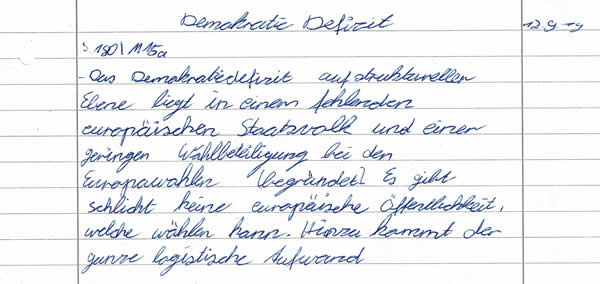 Demokratie Defizit 12.9.19
S. 180/M15a
- Das Demokratiedefizit auf strukturellen
Ebene liegt in einem fehlenden
europäischen Staatsvolk und einer
geringen Wahlbeteiligung bei den
Europawahlen [begründet] Es gibt
schlicht keine europäische Öffentlichkeit,
welche wählen kann. Hinzu kommt der
ganze logistische Aufwand